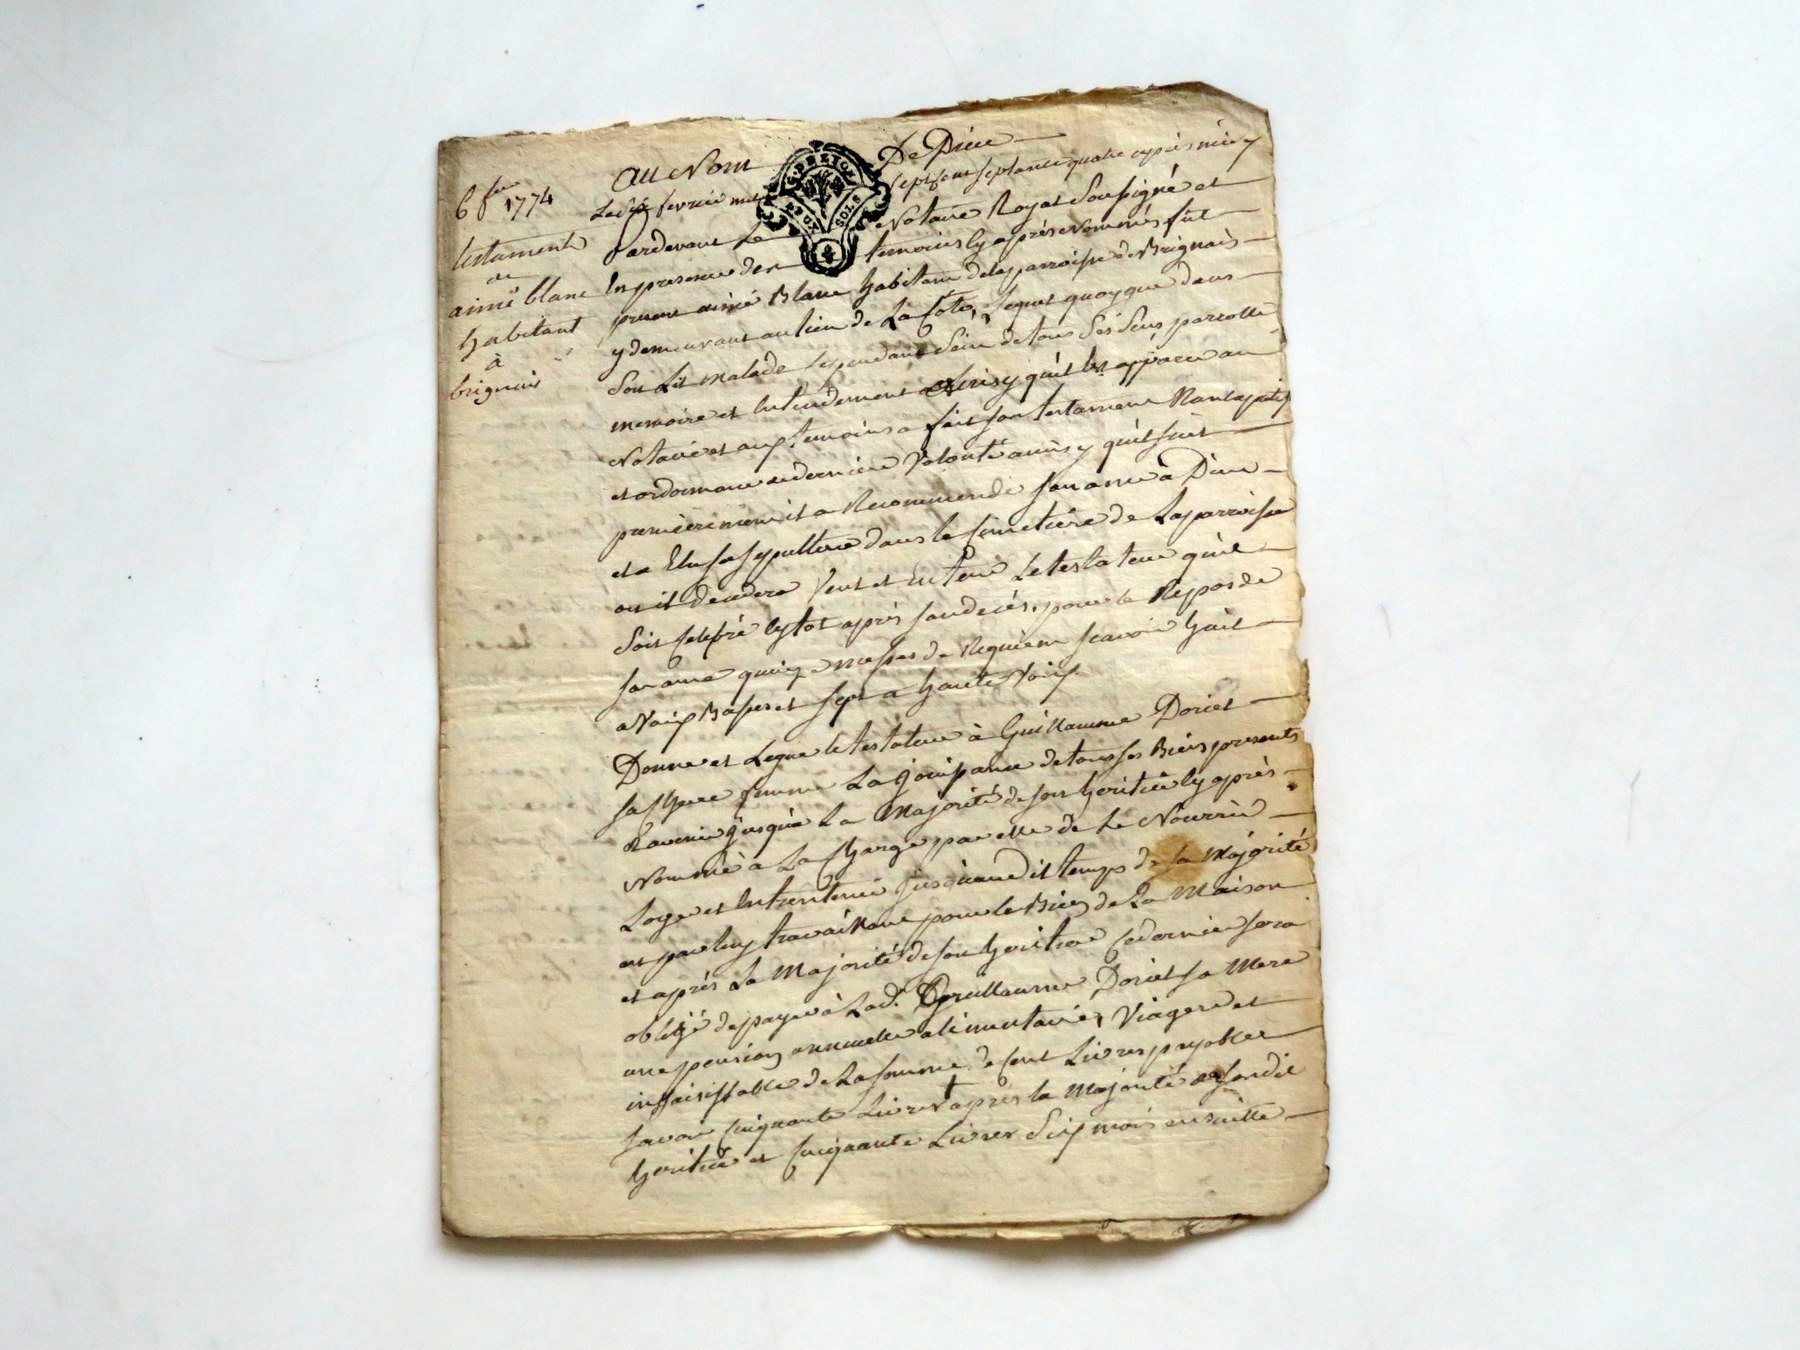 6 fer 1774
testament
de
aimé blanc
habitant
à
brignais
Au Nom De Dieu
Le six fevrier mil sept cent septante quatre après midy
Pardevant Le Notaire Royal Soussigné et
En presence des temoins cy après Nommés fut
present aimé Blanc habitant de la parroisse de Brignais
y demeurant au lieu de La Cote, Lequel quoyque dans
Son Lit malade cependant Sein de tous Ses Sens parolle
memoire et Entendement ainsy qu'il est apparu au
Notaire et aux temoins a fait son testament Noncupatif
et ordonnance de derniere Volonté ainsy qu'il suit
premierement il a Recommendé son ame à Dieu
et a Elu sa sepulture dans le Cimetiere de La parroisse
ou il decedera Veut et Entend Le testateur qu'il
Soit celebré sytot après son decés, pour le Repos de
son ame quinze messes de Requiem scavoir huit
a Voix Basse et sept a haute Voix
Donne et Legue le testateur à Guillaume Doriet
sa chere femme La jouissance de tous ses Biens presents
& avenir jusqu'a La Majorité de son heritier cy après
Nommé à La charge par elle de Le Nourrir
Loger et Entretenir jusqu'audit temps de sa Majorité
en par luy travaillant pour le Bien de La Maison
et après La Majorité de son heritier ce dernier sera
obligé de payer à Lad. Guillaume Doriet sa Mere
une pension annuelle alimentaire, Viagere et
insaisissable de La somme de Cent Livres payables
savoir Cinquante Livres après la Majorité de sondit
heritier et Cinquante Livres Six mois ensuitte
G. DE LYON
DEUX SOLS